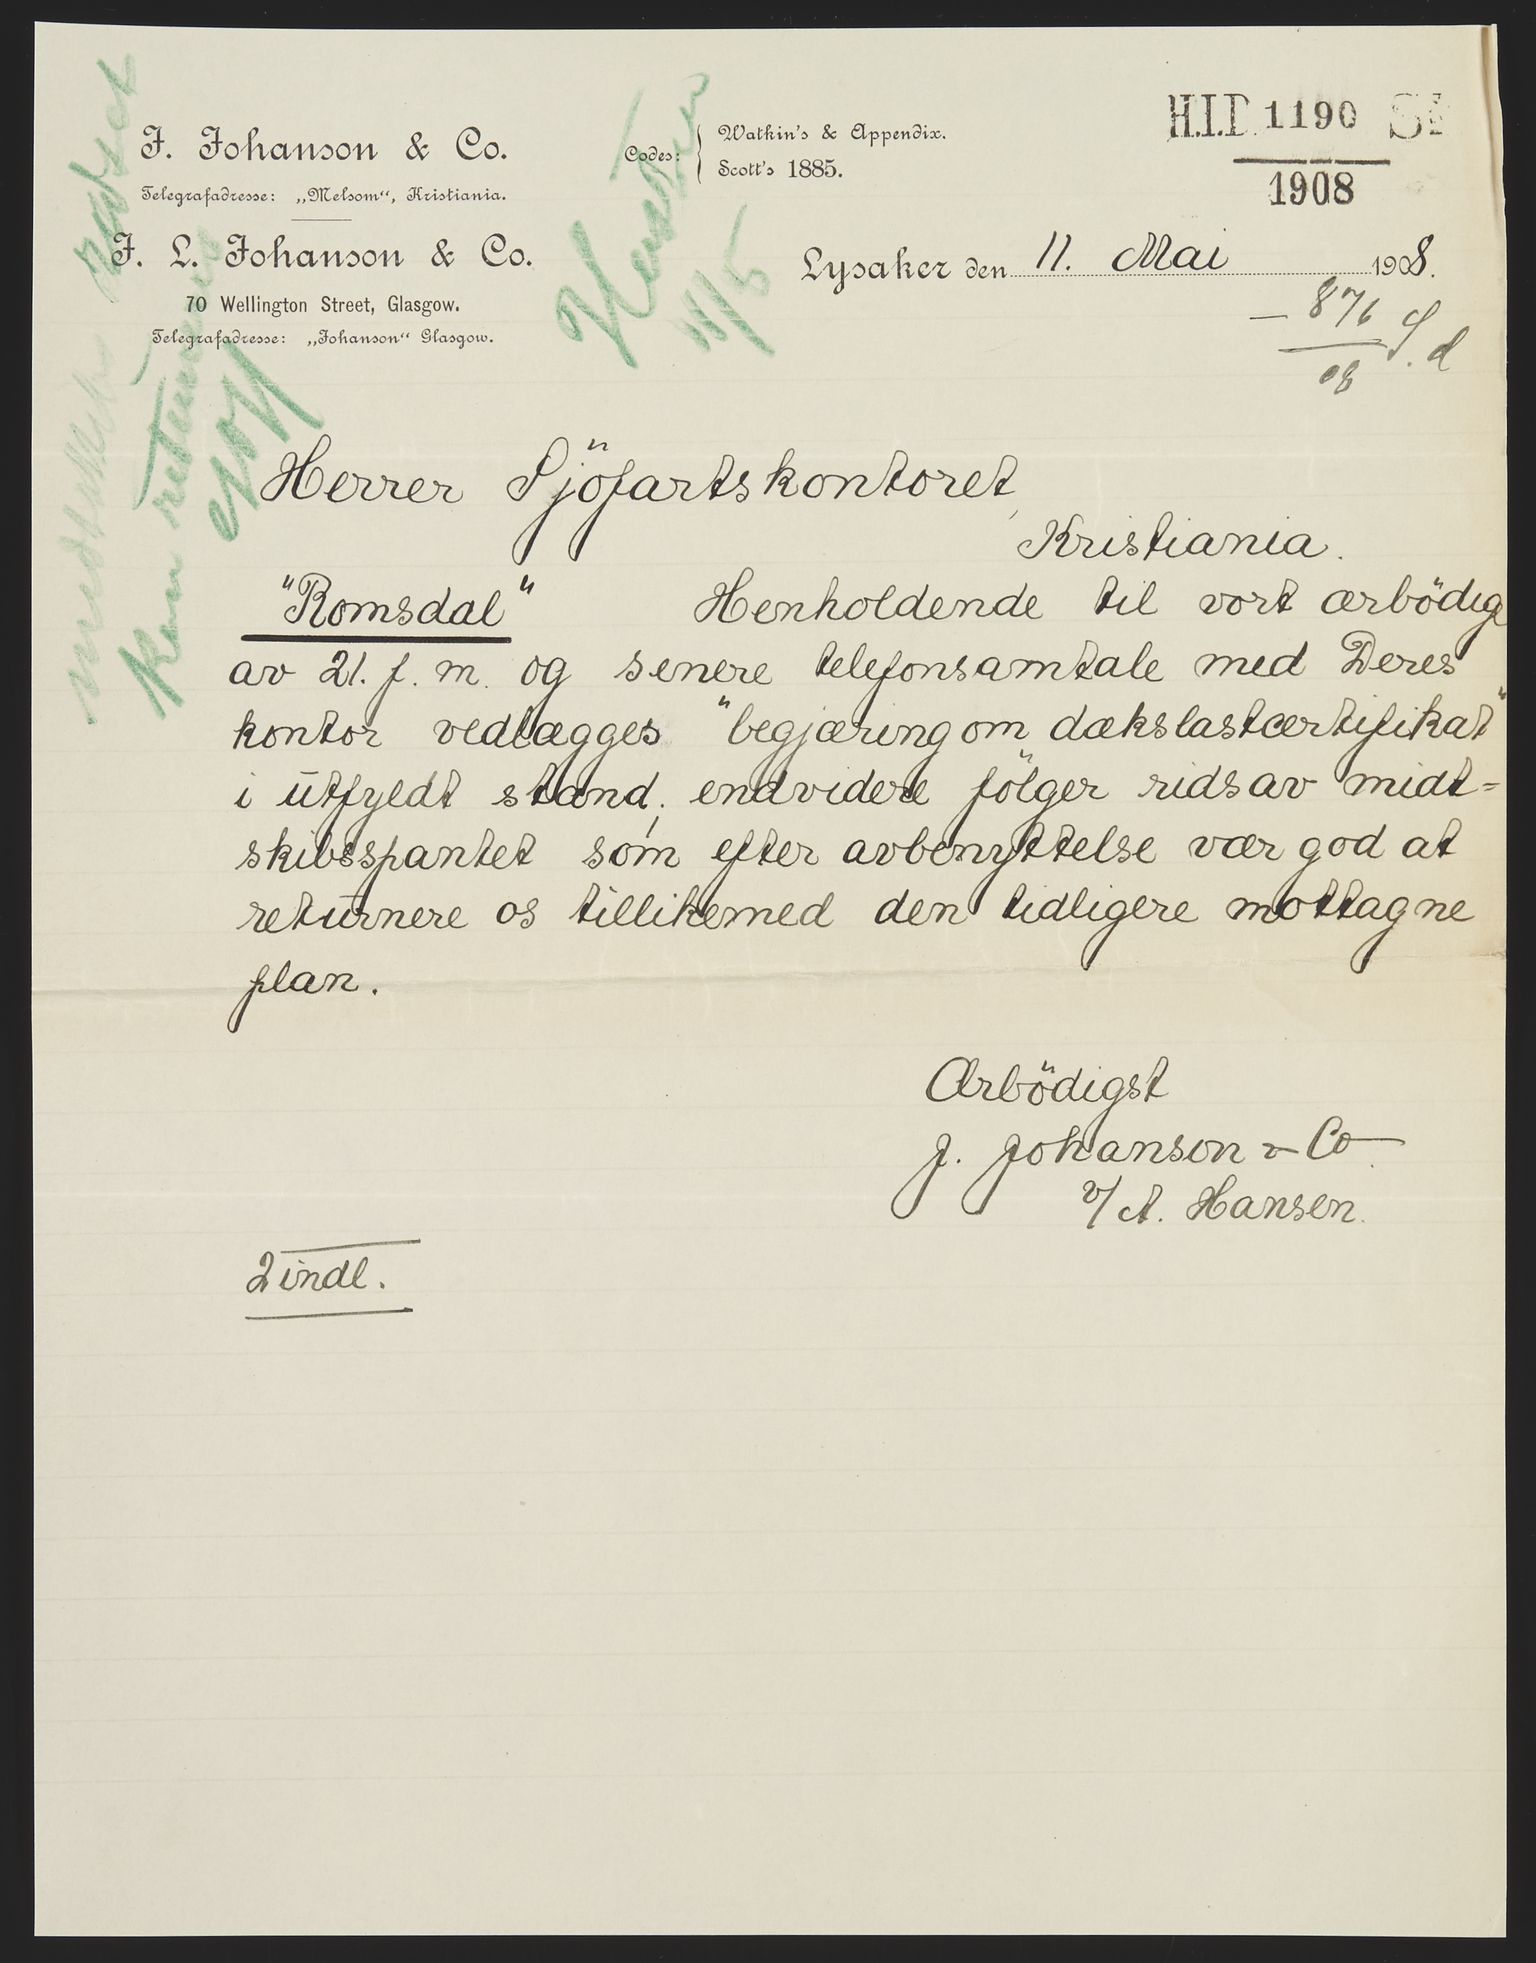 J. Johanson & Co.
Telegrafadresse: „Melsom“, Kristiania.
J. L. Johanson & Co.
70 Wellington Street, Glasgow.
Telegrafadresse: „Johanson“ Glasgow.
Codes: Watkin's & Appendix.
Scott's 1885.
H.I.D. 1190
1908
Lysaker den 11. Mai 1908.
– 876 S. d
08
11/5
Herrer Sjöfartskontoret,
Kristiania.
"Romsdal" Henholdende til vort ærbödige
av 21. f. m. og senere telefonsamtale med Deres
kontor vedlægges "begjæring om dækslastcertifikat"
i utfyldt stand; endvidere fölger rids av midt-
skibsspantet som efter avbenyttelse vær god at
returnere os tillikemed den tidligere mottagne
plan.
Ærbödigst
J. Johanson & Co.
v/ A. Hansen.
2 indl.